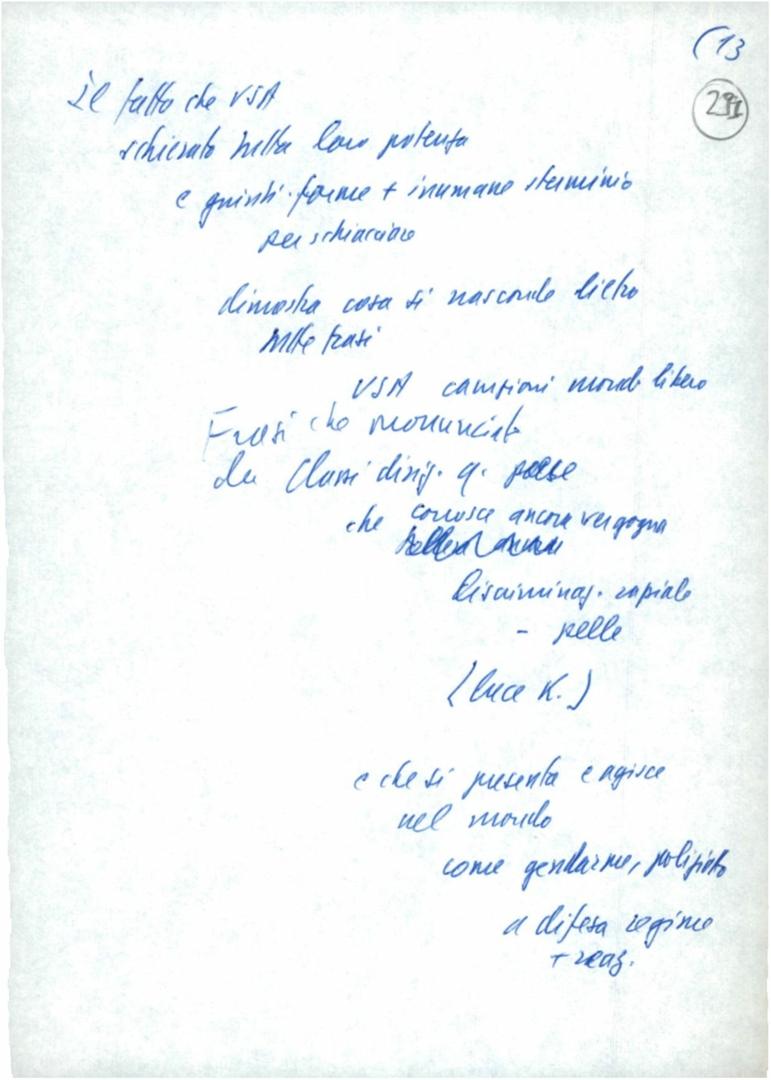 (13
291
Il fatto che USA
schierato tutta loro potenza
e quindi forme + inumane sterminio
per schiacciare
dimostra cosa si nasconde dietro
tutte frasi
USA campioni mondo libero
Frasi che pronunciate
da Classi dirig. q. paese
che conosce ancora vergogna
discriminaz. razziale
- pelle
(Luce K.)
e che si presenta e agisce
nel mondo
come gendarme, poliziotto
a difesa regime
+ reaz.